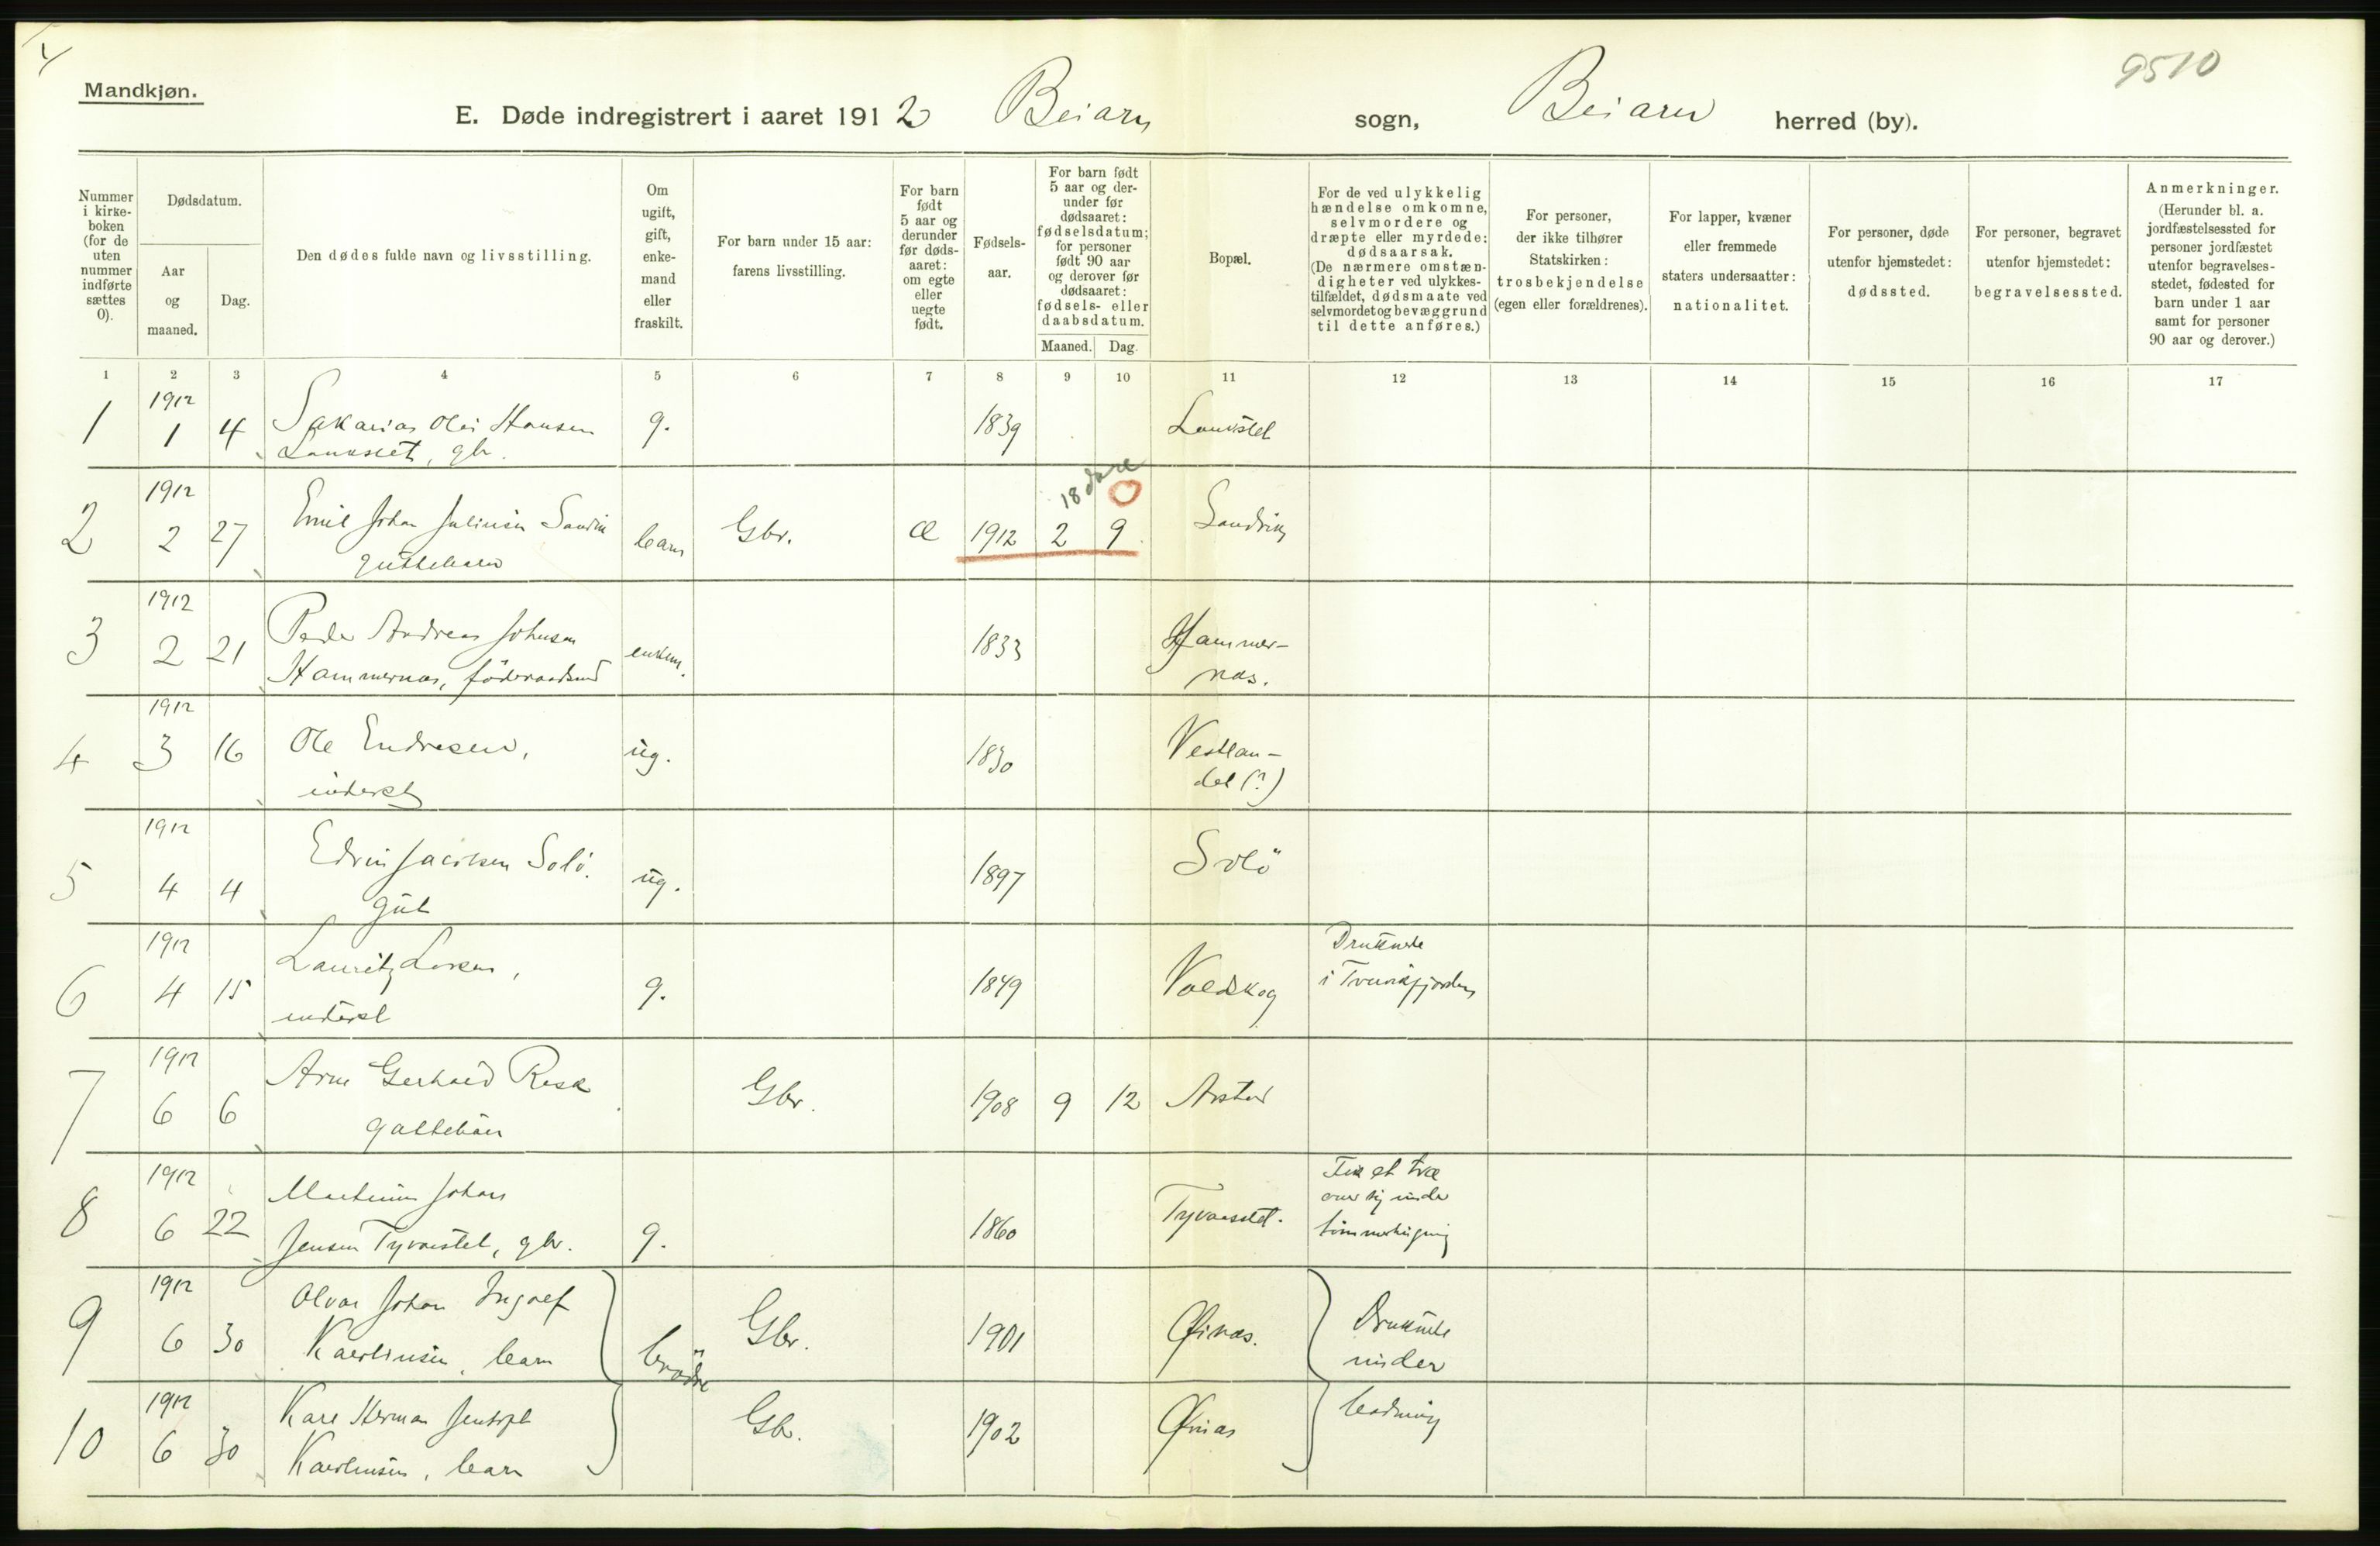 9510
Mandkjøn.
E. Døde indregistrert i aaret 1912 Beiarn sogn, Beiarn herred (by).
Nummer i kirke- boken (for de uten nummer indførte sættes 0).
Dødsdatum.
Aar og maaned.
Dag.
Den dødes fulde navn og livsstilling.
Om ugift, gift, enke- mand eller fraskilt.
For barn under 15 aar: farens livsstilling.
For barn født 5 aar og derunder før døds- aaret: om egte eller uegte født.
Fødsels- aar.
For barn født 5 aar og der- under før dødsaaret: fødselsdatum; for personer født 90 aar og derover før dødsaaret: fødsels- eller daabsdatum.
Maaned. Dag.
Bopæl.
For de ved ulykkelig hændelse omkomne, selvmordere og dræpte eller myrdede: dødsaarsak. (De nærmere omstæn- digheter ved ulykkes- tilfældet, dødsmaate ved selvmord og bevæggrund til dette anføres.)
For personer, der ikke tilhører Statskirken: trosbekjendelse (egen eller forældrenes).
For lapper, kvæner eller fremmede staters undersaatter: nationalitet.
For personer, døde utenfor hjemstedet: dødssted.
For personer, begravet utenfor hjemstedet: begravelsessted.
Anmerkninger. (Herunder bl. a. jordfæstelsessted for personer jordfæstet utenfor begravelses- stedet, fødested for barn under 1 aar samt for personer 90 aar og derover.)
1 2 3 4 5 6 7 8 9 10 11 12 13 14 15 16 17
1912
1 1 4 Sakarias Olai Hansen g. 1839
gbr.
1912 18 dage
2 2 27 Emil Johan Julinsen Sandvik barn Gbr. æ 1912 2 9 Sandvik
guttebarn
1912
3 2 21 Peder Andreas Johnsen enkem. 1833 Hammer-
Hammernæs, föderaadsmd næs.
1912
4 3 16 Ole Endresen, ug. 1830 Vestlan-
inderst det (?)
1912
5 4 4 Edvin Jacobsen Solö. ug. 1897 Solö
gut
1912 Druknede
6 4 15 Lauritz Larsen, g. 1849 Voldskog i
inderst
1912
7 6 6 Arne Gerhard Gbr. 1908 9 12
guttebarn
1912 Fik et træ
8 6 22 Martinus Johan 1860 over sig under
Jensen gbr. g. tömmerhugning
1912
9 6 30 Johan Ingolf Gbr. 1901 Druknede
Karolinsen, barn brödre under
1912
10 6 30 Kare Herman Gbr. 1902 badning
Karolinsen, barn